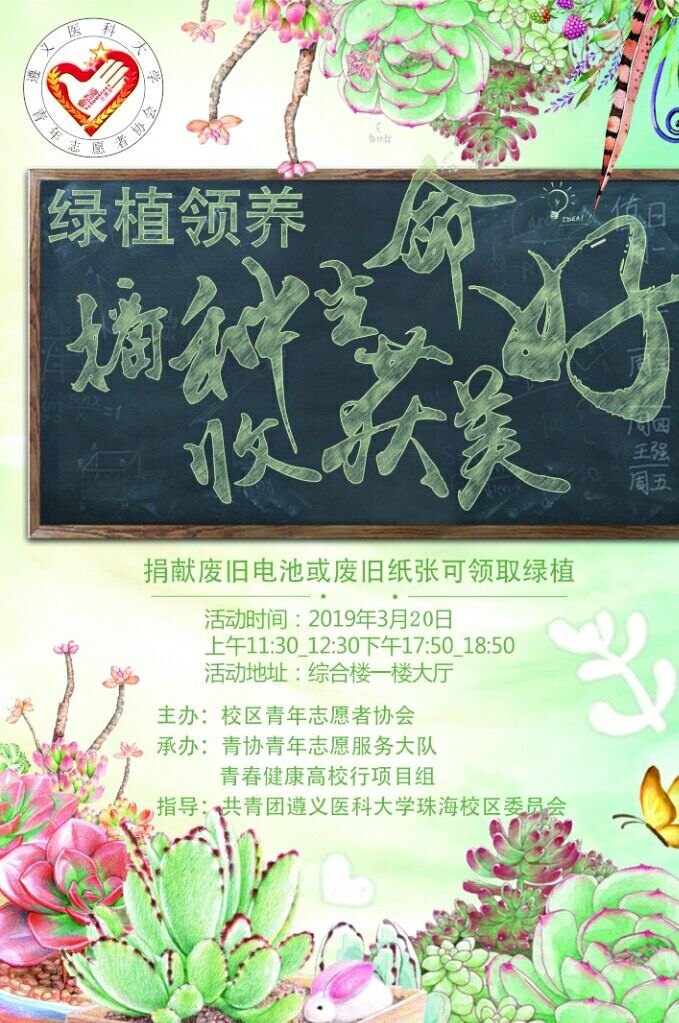 遵义医科大学
青年志愿者协会
绿植领养
播种生命
收获美好
IDEA!
值日
周四
王强
周五
捐献废旧电池或废旧纸张可领取绿植
活动时间：2019年3月20日
上午11:30_12:30下午17:50_18:50
活动地址：综合楼一楼大厅
主办：校区青年志愿者协会
承办：青协青年志愿服务大队
青春健康高校行项目组
指导：共青团遵义医科大学珠海校区委员会